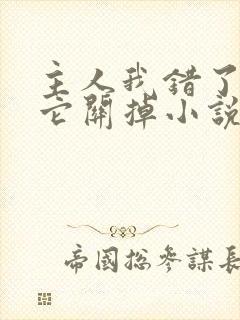 主人我錯了
它關掉小說
帝國總參謀長